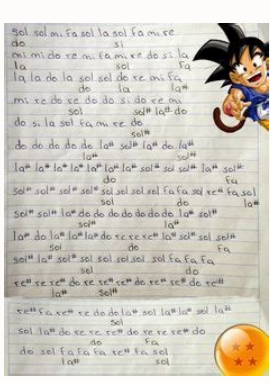 sol sol mi fa sol la sol fa mi re
do si
mi mi do re mi fa mi re do si la
la sol fa
la la do la sol sol do re mi fa
do la la#
mi re do re do do si do re mi
sol sol# la# do
do si la sol fa mi re do
sol#
do do do do do la# sol# la# do la#
la# sol#
la# la# la# la# la# la# la# sol# sol sol# la# sol#
do fa
sol# sol# sol# sol# sol sol sol fa fa sol re# fa sol
sol do la#
sol# sol# la# do do do do do do la# sol#
sol# la#
la# do la# la# la# do re re re# la# sol# sol sol#
sol do fa
sol# la# sol# la# sol sol sol sol fa fa fa
sol do
re# re re# do re re# re re# do re re# re do#
la# sol#
re# fa re# re do do la# sol la# la# sol la#
sol
sol la# do re re re# do re re re# do
do fa
do sol fa fa fa re# fa sol
la# sol